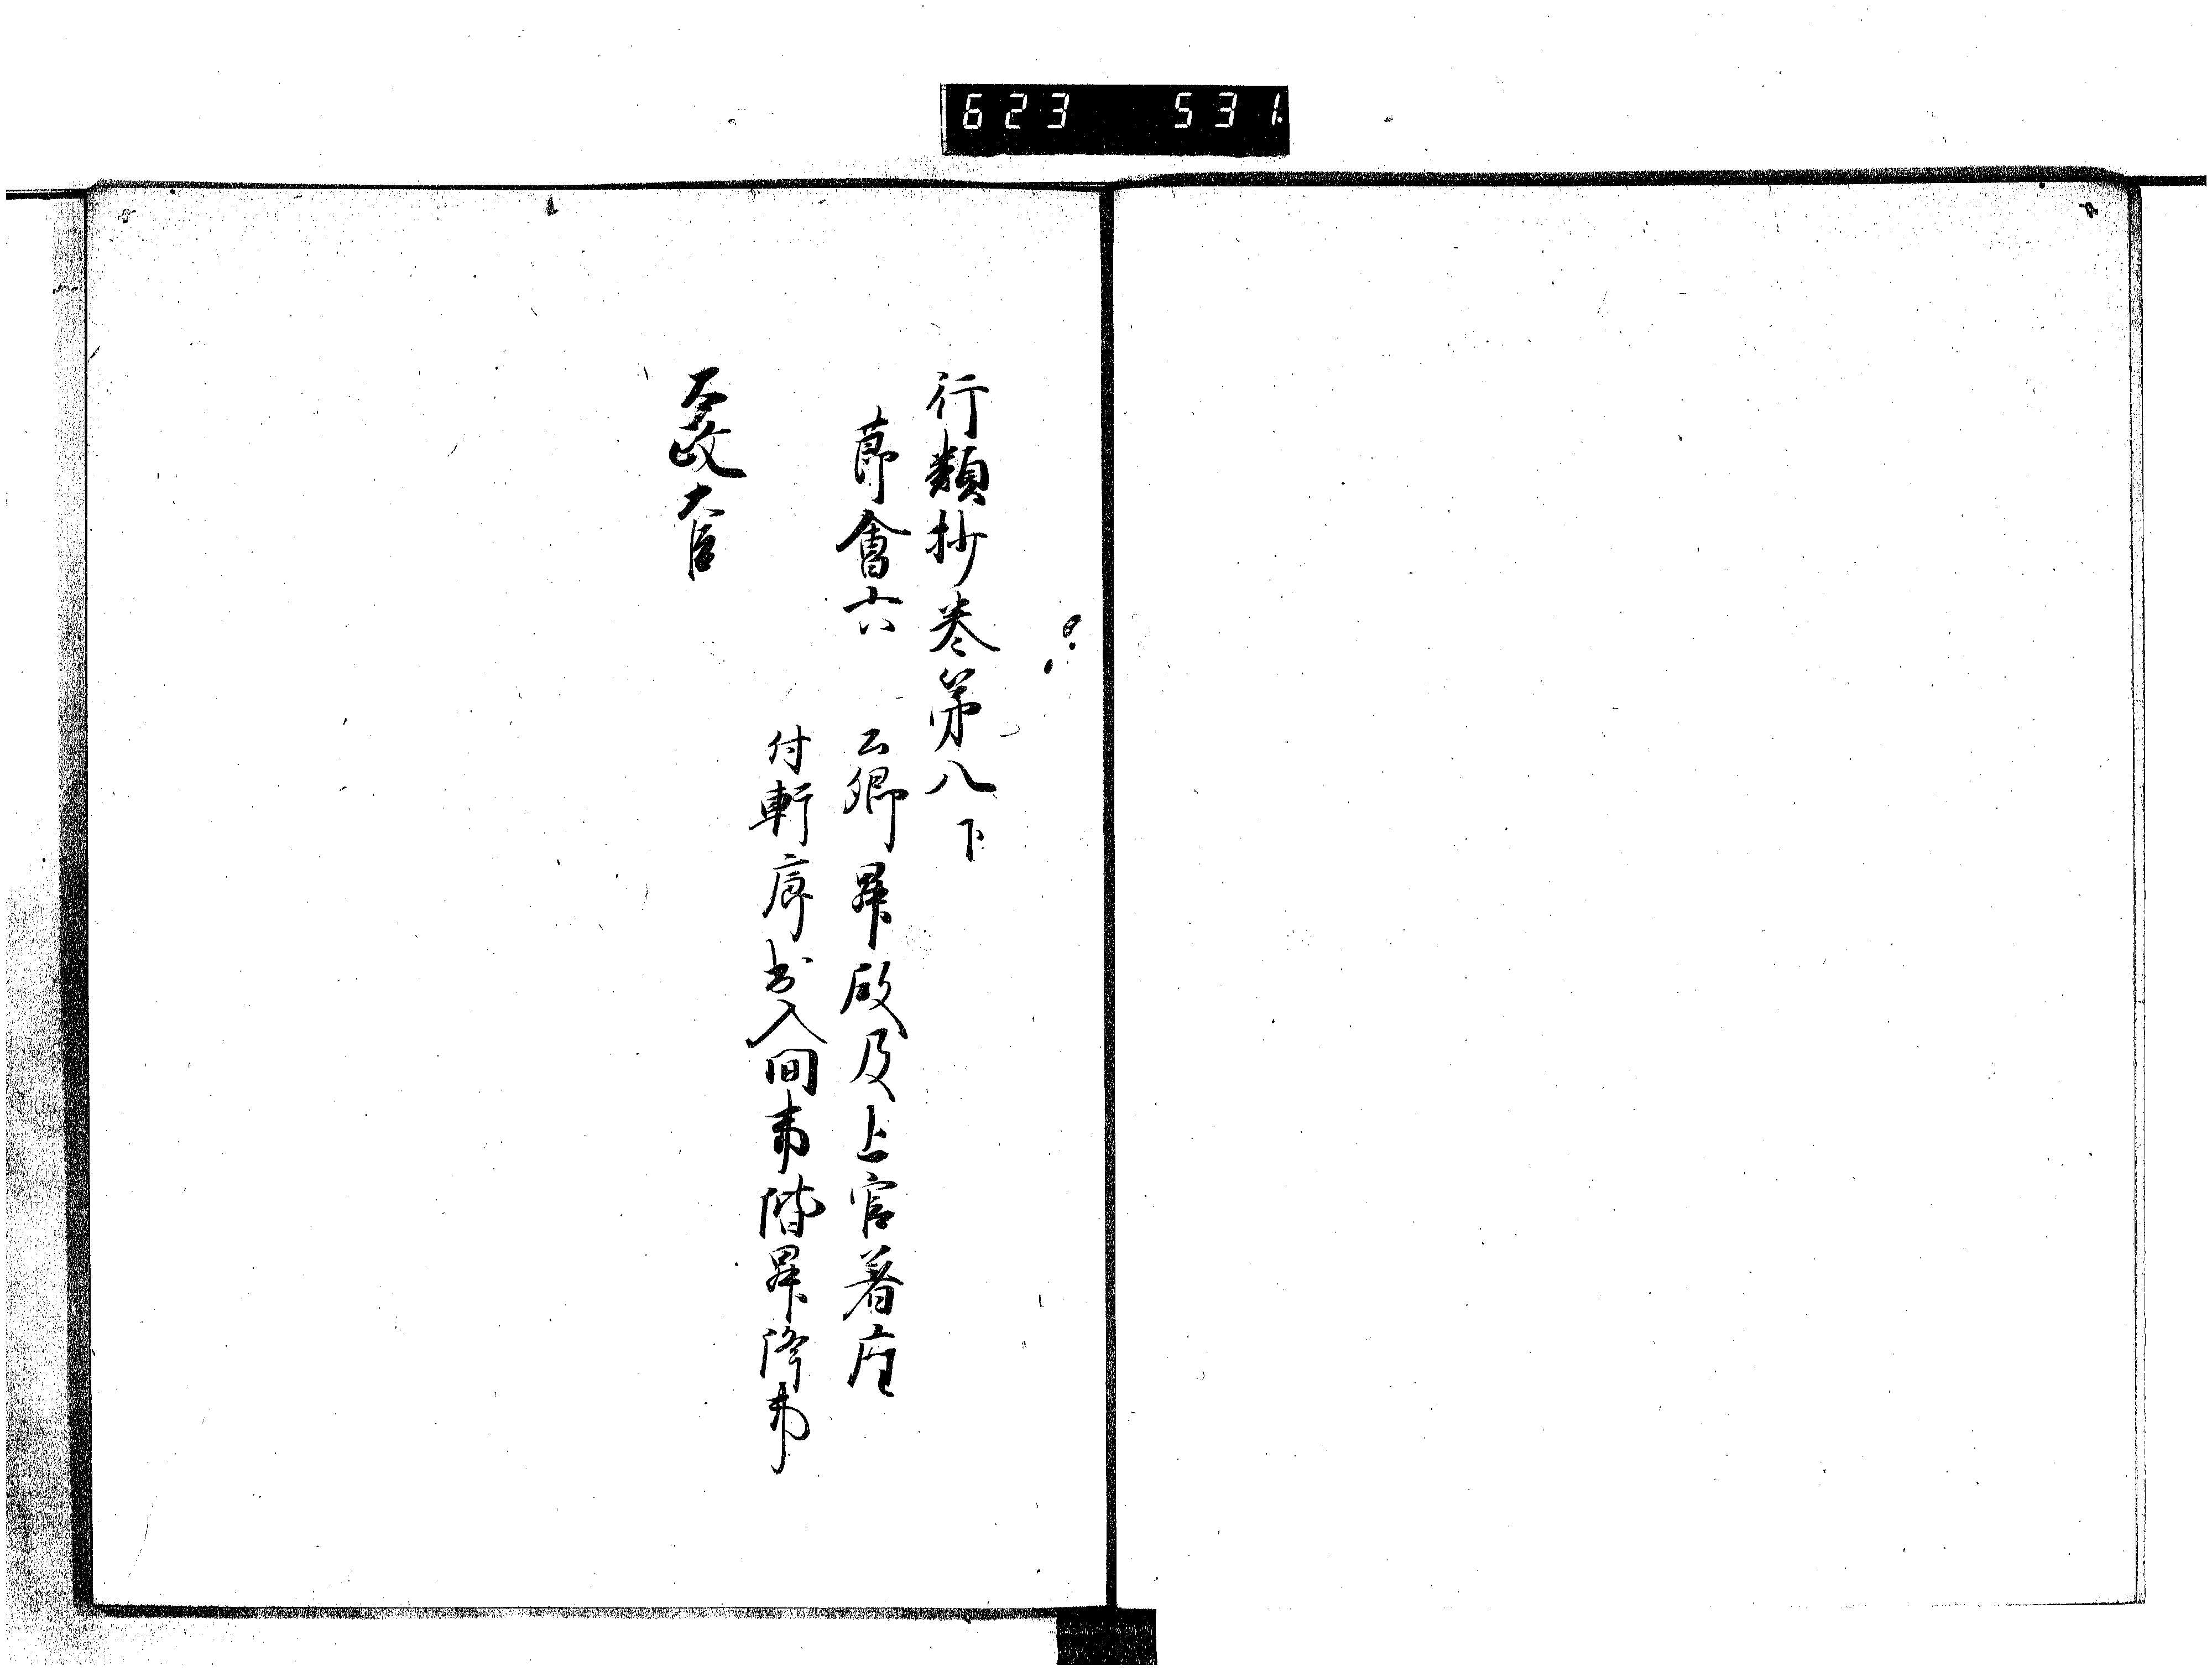 623 531
行類抄卷第八下
節會六 公卿昇殿及上官着座
付軒廊出入間事階昇降事
太政大臣